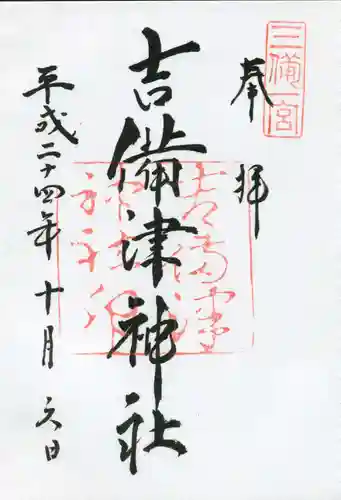 三備一宮
奉拝
吉備津神社
平成二十四年十月六日